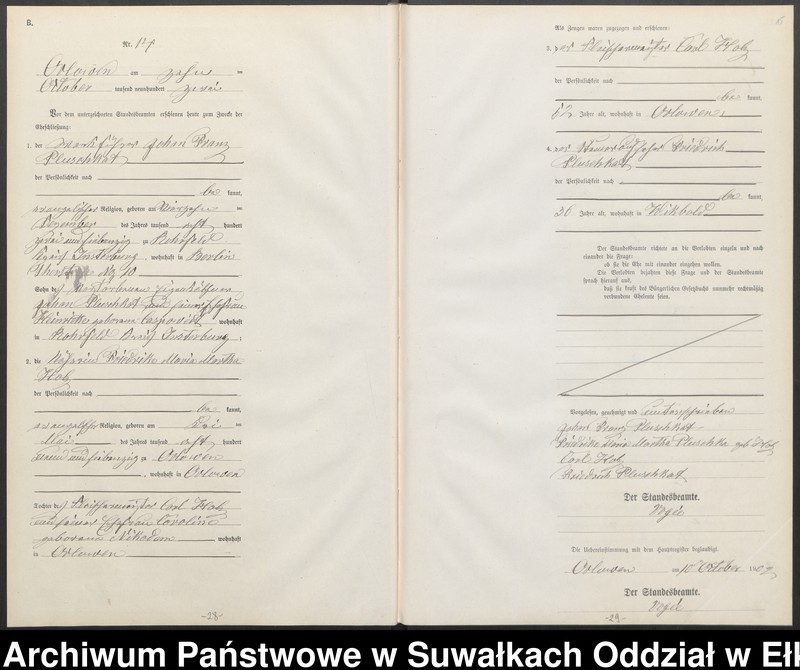 B.
Nr. 14
Orlowen am zehn ten
October tausend neunhundert zwei
Vor dem unterzeichneten Standesbeamten erschienen heute zum Zwecke der
Eheschließung:
1. der Johan Franz
Pluschkat
der Persönlichkeit nach
be kannt,
evangelischer Religion, geboren am vierzehn ten
Dezember des Jahres tausend acht hundert
zwei und siebenzig zu Rohrfeld
Kreis Insterburg, wohnhaft in Berlin
No 40
Sohn des verstorbenen Eigenkäthners
Johan Pluschkat und seiner Ehefrau
Heinriette geborene wohnhaft
in Rohrfeld Kreis Insterburg;
2. die Friedrike Maria Martha
Holz
der Persönlichkeit nach
be kannt,
evangelischer Religion, geboren am drei
Mai des Jahres tausend acht hundert
neun und siebenzig zu Orlowen
, wohnhaft in Orlowen
Tochter des Fleischermeister Carl Holz
und seiner Ehefrau Caroline
geborenen Nikodem wohnhaft
in Orlowen
-28-
6
Als Zeugen waren zugezogen und erschienen:
3. der Fleischermeister Carl Holz
der Persönlichkeit nach
be kannt,
52 Jahre alt, wohnhaft in Orlowen;
4. der Friedrich
Pluschkat
der Persönlichkeit nach
be kannt,
30 Jahre alt, wohnhaft in
Der Standesbeamte richtete an die Verlobten einzeln und nach
einander die Frage:
ob sie die Ehe mit einander eingehen wollen.
Die Verlobten bejahten diese Frage und der Standesbeamte
sprach hierauf aus,
daß sie kraft des Bürgerlichen Gesetzbuchs nunmehr rechtmäßig
verbundene Eheleute seien.
Vorgelesen, genehmigt und unterschrieben
Johan Franz Pluschkat
Friedrike Maria Martha Pluschka geb. Holz
Carl Holz
Friedrich Pluschkat
Der Standesbeamte.
Die Uebereinstimmung mit dem Hauptregister beglaubigt
Orlowen am 10 October 1902
Der Standesbeamte.
-29-
Archiwum Państwowe w Suwałkach Oddział w Eł